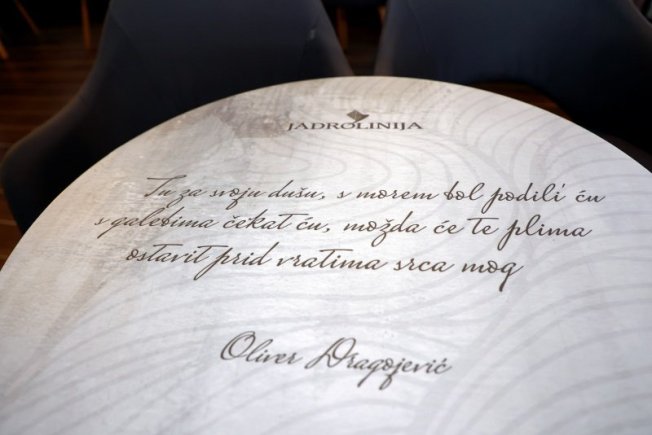 JADROLINIJA
Tu za svoju dušu, s morem bol podili' ću
s galebima čekat ću, možda će te plima
ostavit prid vratima srca mog
Oliver Dragojević